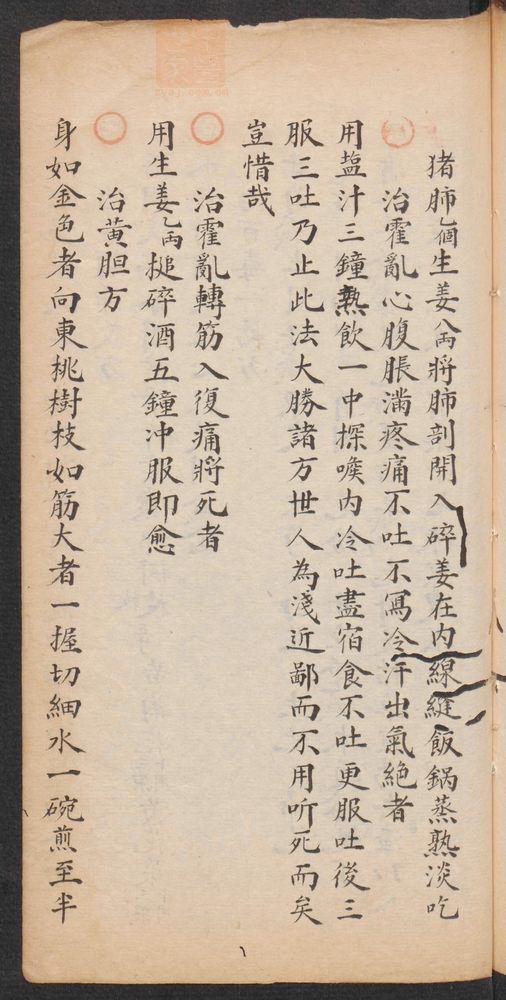 猪肺乙個生姜八両將肺剖開入碎姜在内線縫飯鍋蒸熟淡吃
治霍亂心腹脹滿疼痛不吐不寫冷汗出氣絶者
用塩汁三鐘熱飲一中探喉内冷吐盡宿食不吐更服吐後三
服三吐乃止此法大勝諸方世人為淺近鄙而不用听死而矣
豈惜哉
治霍亂轉筋入復痛將死者
用生姜乙両搥碎酒五鐘冲服即愈
治黄胆方
身如金色者向東桃樹枝如筋大者一握切細水一碗煎至半